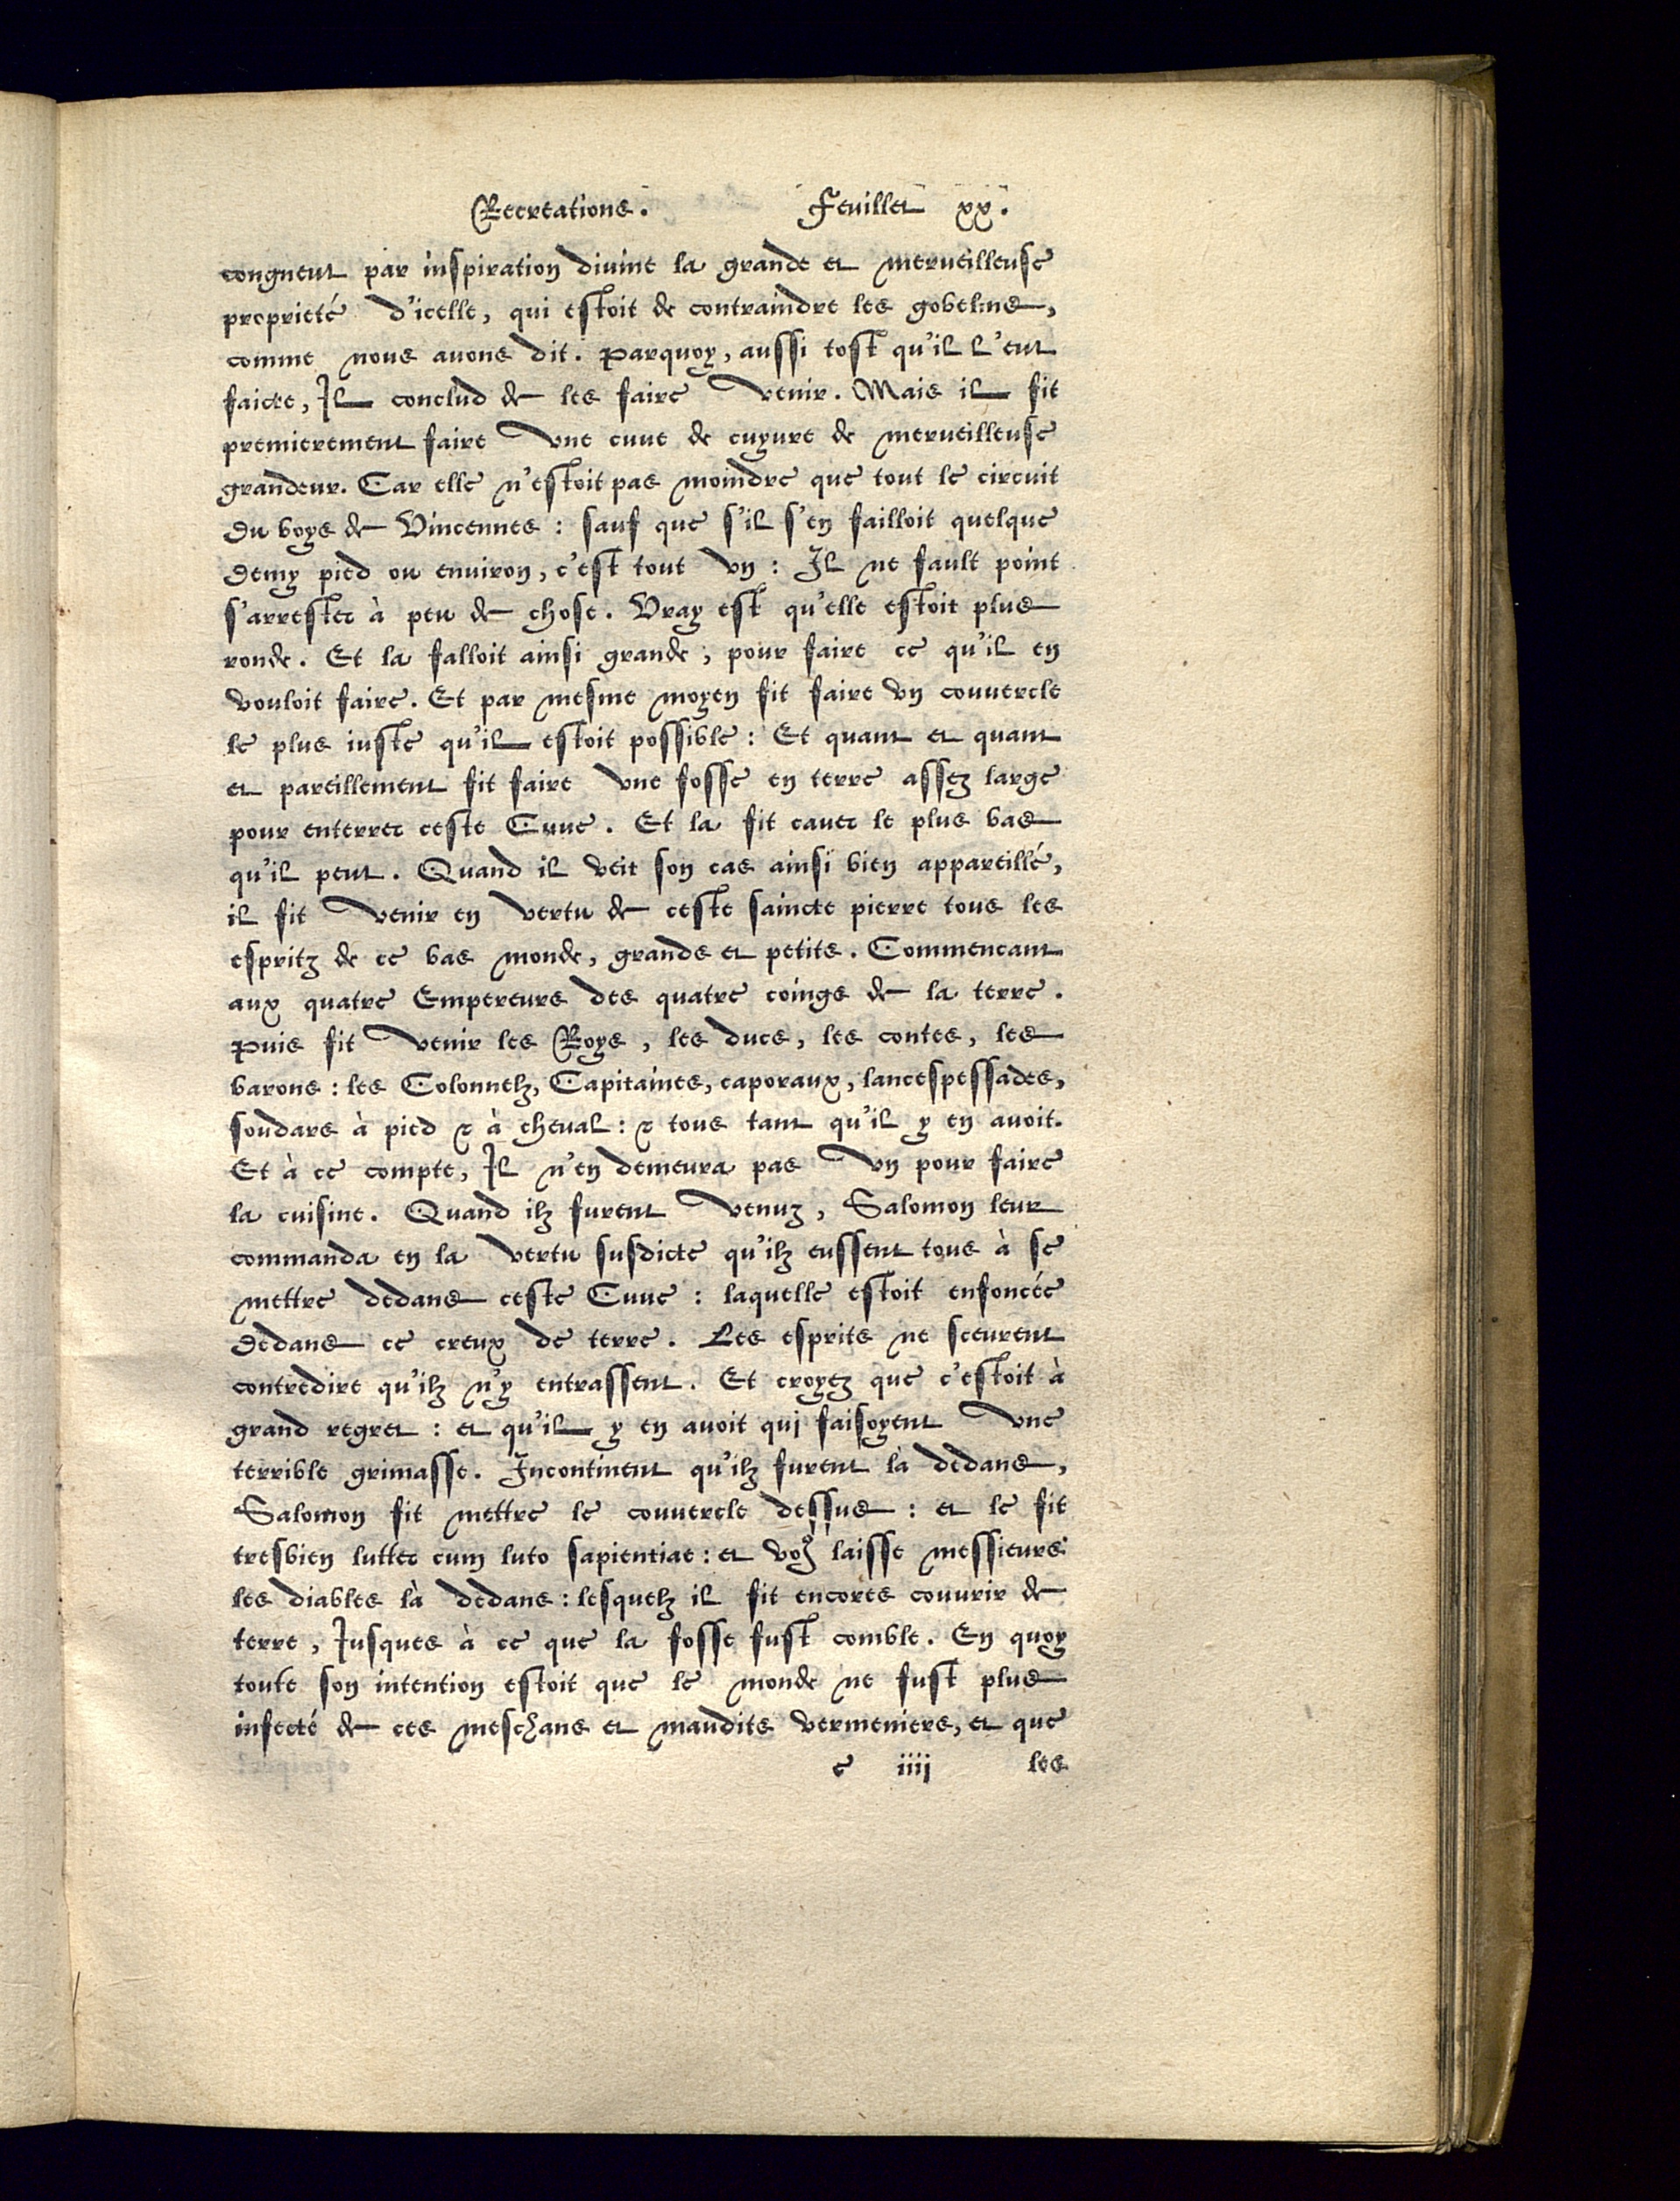 Recreations. Feuillet xx.
congneut par inspiration diuine la grande et merueilleuse
proprieté d'icelle, qui estoit de contraindre les gobelins,
comme nous auons dit. Parquoy, aussi tost qu'il l'eut
faicte, Il conclud de les faire venir. Mais il fit
premierement faire vne cuue de cuyure de merueilleuse
grandeur. Car elle n'estoit pas moindre que tout le circuit
du boys de Vincennes : sauf que s'il s'en failloit quelque
demy pied ou enuiron, c'est tout vn : Il ne fault point
s'arrester à peu de chose. Vray est qu'elle estoit plus
ronde. Et la falloit ainsi grande, pour faire ce qu'il en
vouloit faire. Et par mesme moyen fit faire vn couuercle
le plus iuste qu'il estoit possible : Et quant et quant
et pareillement fit faire vne fosse en terre assez large
pour enterrer ceste Cuue. Et la fit cauer le plus bas
qu'il peut. Quand il veit son cas ainsi bien appareillé,
il fit venir en vertu de ceste saincte pierre tous les
espritz de ce bas monde, grands et petits. Commencant
aux quatre Empereurs des quatre coings de la terre.
Puis fit venir les Roys, les ducs, les contes, les
barons : les Colonnelz, Capitaines, caporaux, lancespessades,
soudars à pied & à cheual : & tous tant qu'il y en auoit.
Et à ce compte, Il n'en demeura pas vn pour faire
la cuisine. Quand ilz furent venuz, Salomon leur
commanda en la vertu susdicte qu'ilz eussent tous à se
mettre dedans ceste Cuue : laquelle estoit enfoncée
dedans ce creux de terre. Les esprits ne sceurent
contredire qu'ilz n'y entrassent. Et croyez que c'estoit à
grand regret : et qu'il y en auoit qui faisoyent vne
terrible grimasse. Incontinent qu'ilz furent là dedans,
Salomon fit mettre le couuercle dessus : et le fit
tresbien lutter cum luto sapientiae : et voꝰ laisse messieurs
les diables là dedans : lesquelz il fit encores couurir de
terre, Iusques à ce que la fosse fust comble. En quoy
toute son intention estoit que le monde ne fust plus
infecté de ces meschans et maudits vermeniers, et que
e iiij les